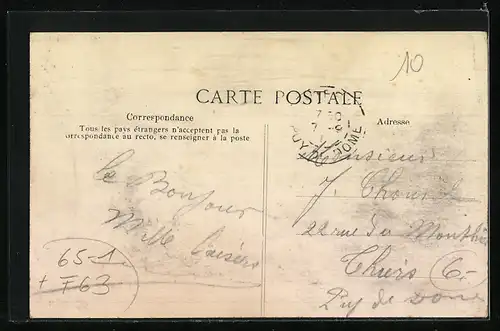 10
CARTE POSTALE
Correspondance
Adresse
Tous les pays étrangers n'acceptent pas la
correspondance au recto, se renseigner à la poste
7 30
7 -9
PUY DE DOME
Monsieur
le Bonjour
J.
Mille baisers
22 rue du
Thiers
Puy de Dome
65-1
+ F63
6-